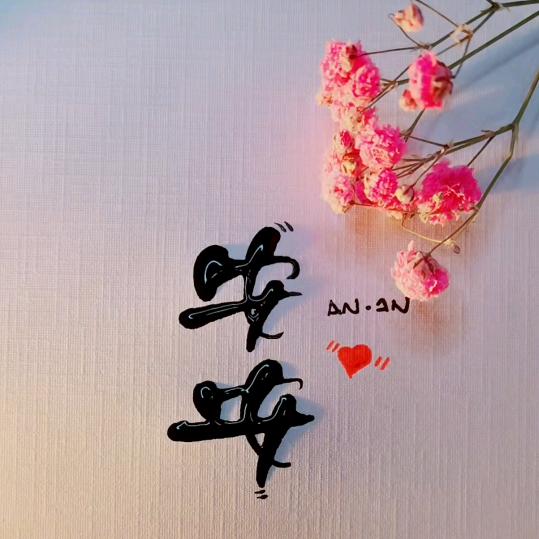 安安
AN·AN